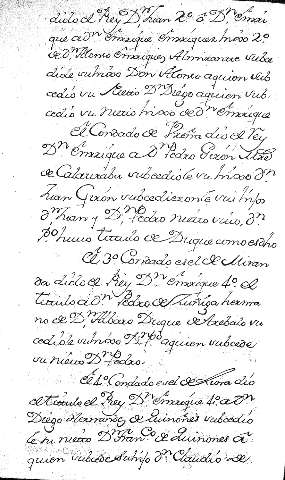 diole el Rey Dn Juan 2º a Dn Enrri
que a Dn Enrrique Enrriquez hixo 2º
de Dn Alonso Enrriquez Almirante subce
diole su hixo Don Alonso a quien sub
cedio su Dn Diego a quien sub
cedio su nieto hixo de Dn Enrrique
El Condado de dio el Rey
Dn Enrrique a Dn Pedro Giron Mro
de Calatraba subcediole su hixo Dn
Juan Giron subcedieronle sus hijos
Dn Juan y Dn Po nieto suio, Dn
Po hubo titulo de Duque como es dho
El 3º Condado es el de Miran
da diole el Rey Dn Enrrique 4º el
titulo a Dn Pedro de Zuñiga herma
no de Dn Albaro Duque de Arebalo su
cediole su hixo Dn Po a quien subcede
su nieto Dn Pedro.
El 4º Condado es el de Luna dio
el titulo el Rey Dn Enrrique 4º a Dn
Diego Hernandez de Quiñones subcedio
le su nieto Dn Franco de Quiñones a
quien subcede su hijo Dn Claudio de